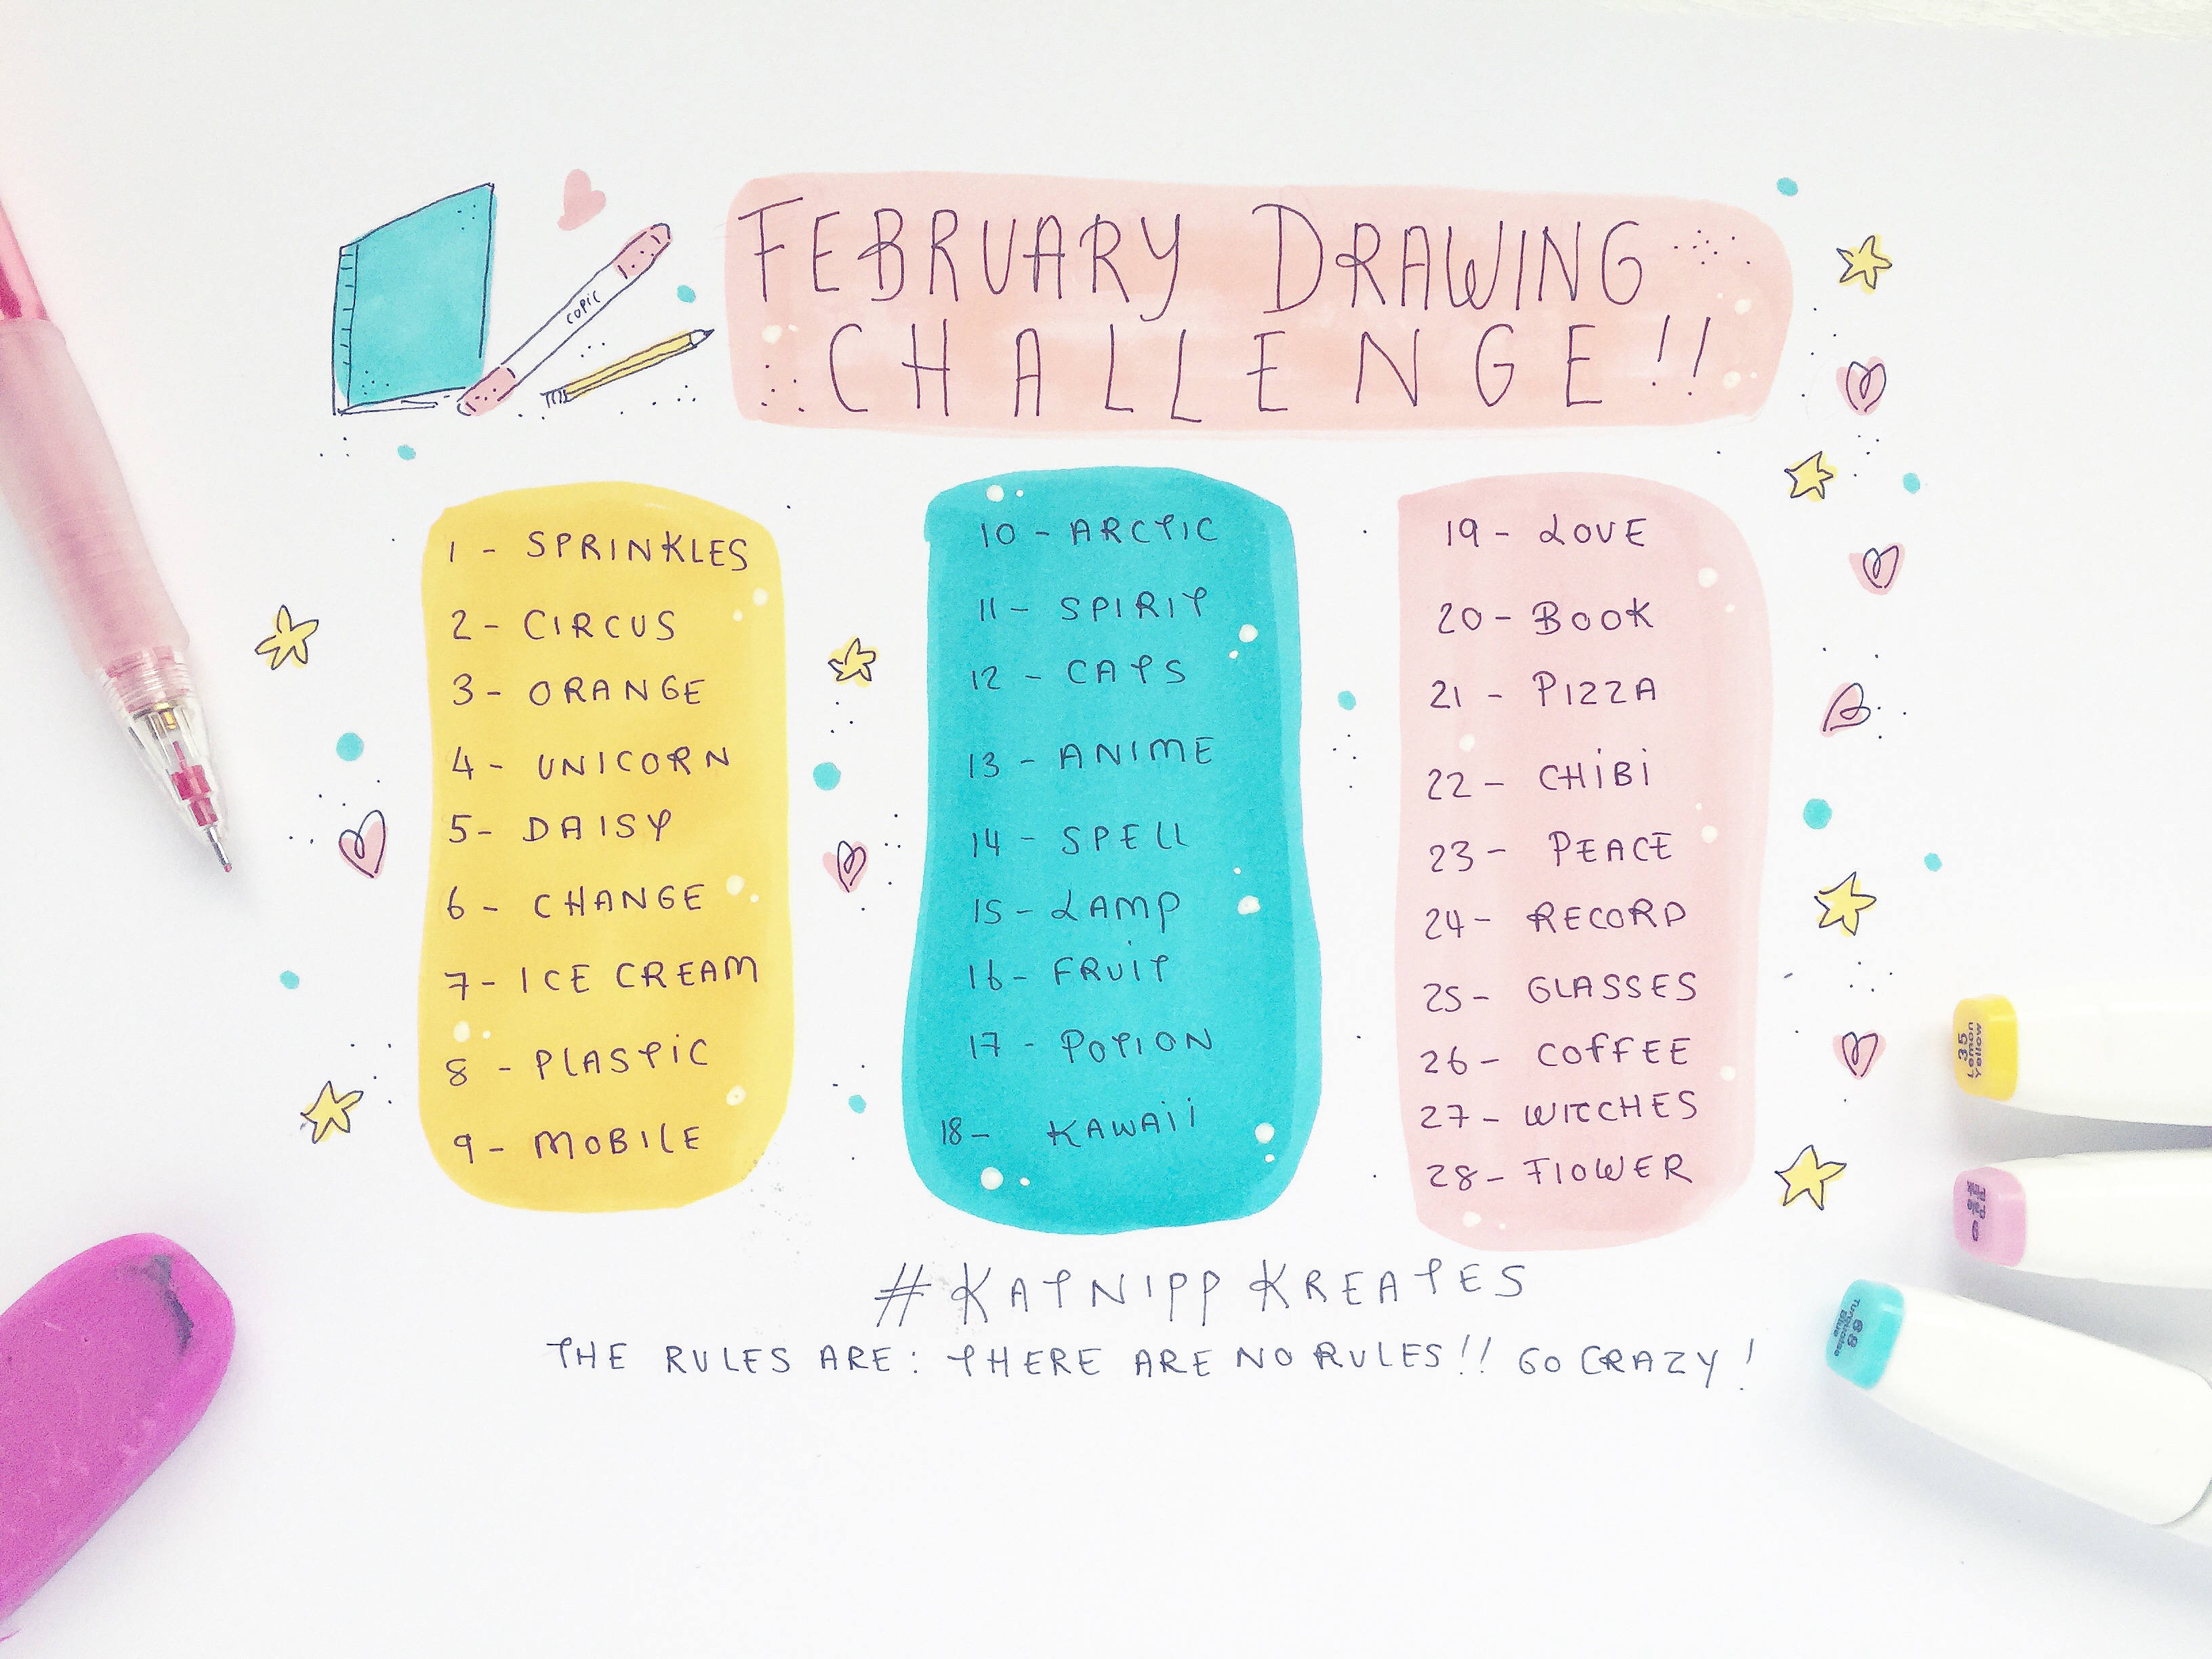 FEBRUARY DRAWING
CHALLENGE!!
COPIC
1 - SPRINKLES
2 - CIRCUS
3 - ORANGE
4 - UNICORN
5- DAISY
6 - CHANGE
7- ICE CREAM
8 - PLASTIC
9 - MOBILE
10 - ARCTIC
11 - SPIRIT
12 - CATS
13 - ANIME
14 - SPELL
15 - LAMP
16- FRUIT
17 - POTION
18- KAWAII
19 - LOVE
20 - BOOK
21 - PIZZA
22 - CHIBI
23 - PEACE
24- RECORD
25- GLASSES
26- COFFEE
27- WITCHES
28- FLOWER
#KATNIPP KREATES
THE RULES ARE: THERE ARE NO RULES!! GO CRAZY!
35
Lemon
Yellow
68
Turquoise
Blue